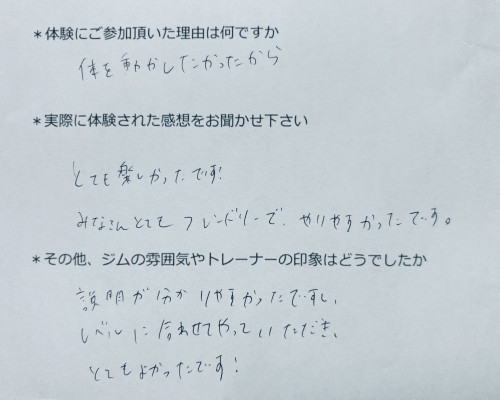 *体験にご参加頂いた理由は何ですか
体を動かしたかったから
*実際に体験された感想をお聞かせ下さい
とても楽しかったです!
みなさんとてもフレンドリーで、やりやすかったです。
*その他、ジムの雰囲気やトレーナーの印象はどうでしたか
説明が分かりやすかったですし、
レベルに合わせてやっていただき、
とてもよかったです!